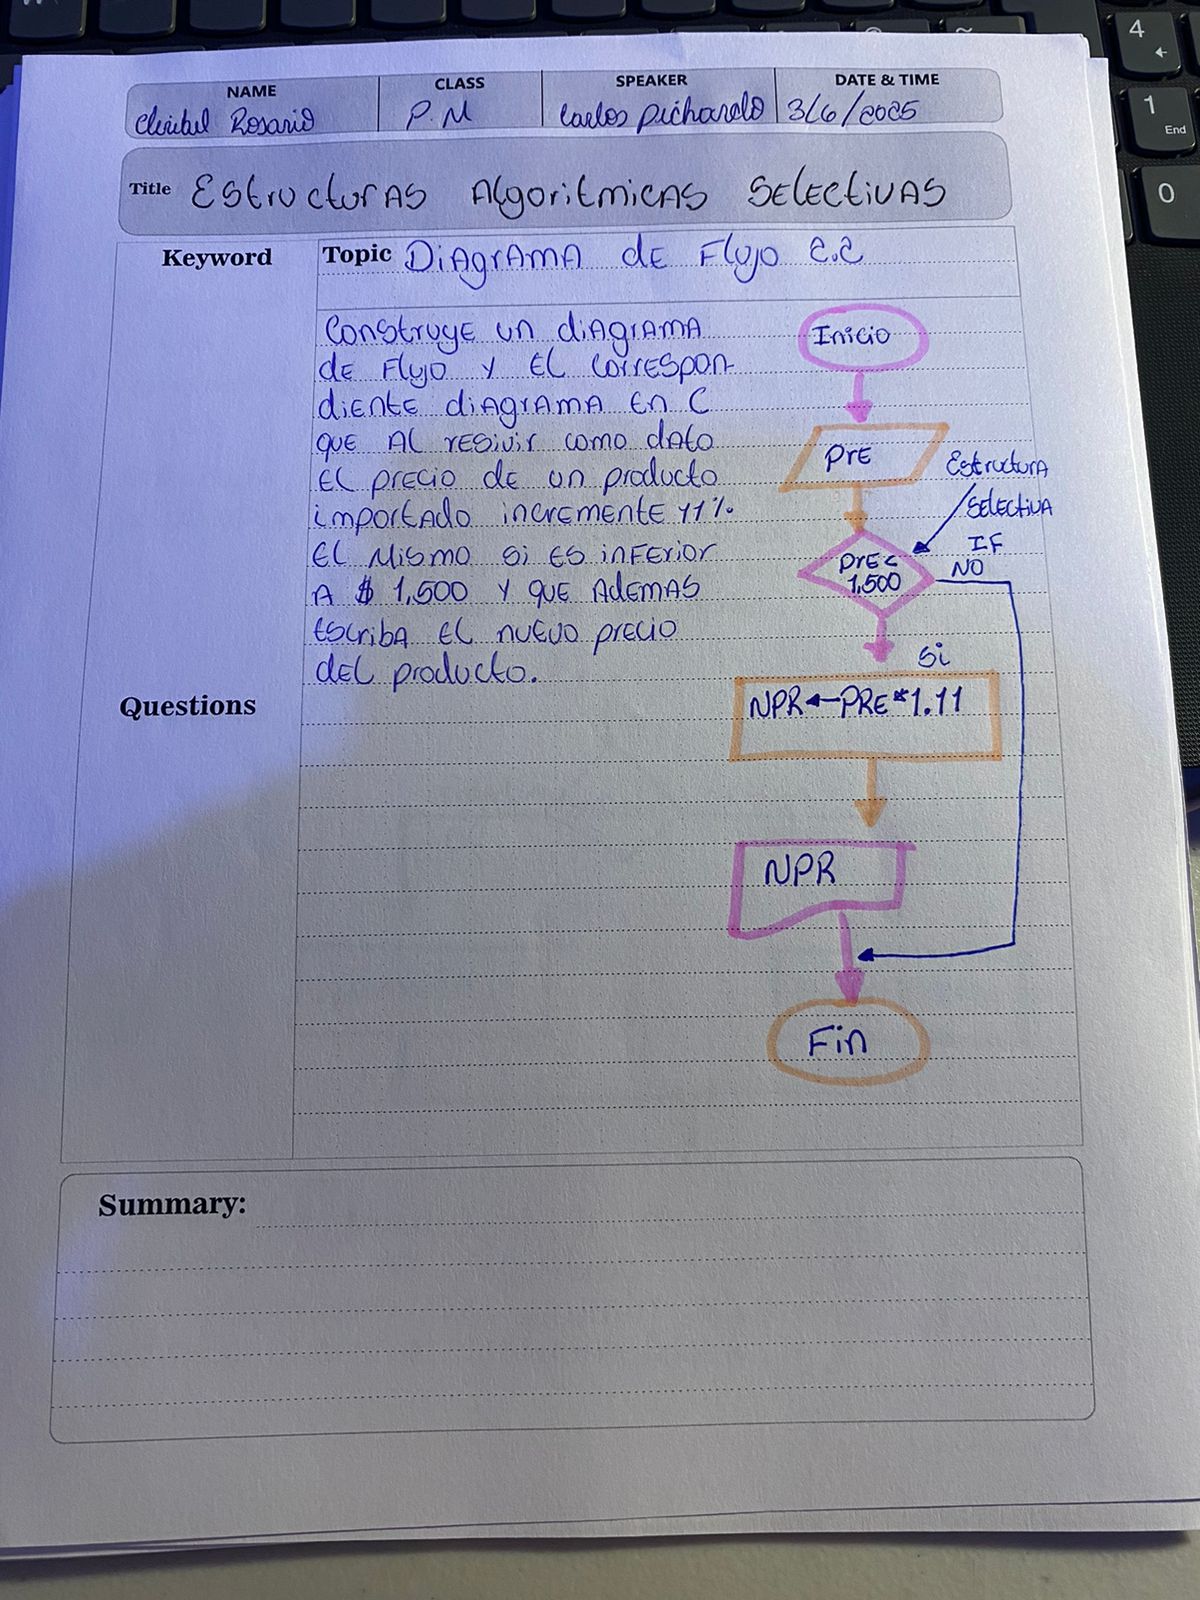 NAME CLASS SPEAKER DATE & TIME
Rosario P.M Carlos Pichardo 3/6/2025
Title Estructuras Algoritmicas Selectivas
Keyword
Topic Diagrama de Flujo 2.2
Construye un diagrama
de Flujo y el correspon-
diente diagrama en C
que al resivir como dato
el precio de un producto
importado incremente 11%
el mismo si es inferior
a $ 1,500 y que ademas
escriba el nuevo precio
del producto.
Inicio
PrE
Estructura
selectiva
IF
PrE<
1,500
NO
Si
NPR←PRE*1.11
NPR
Fin
Questions
Summary:
4
1
End
0